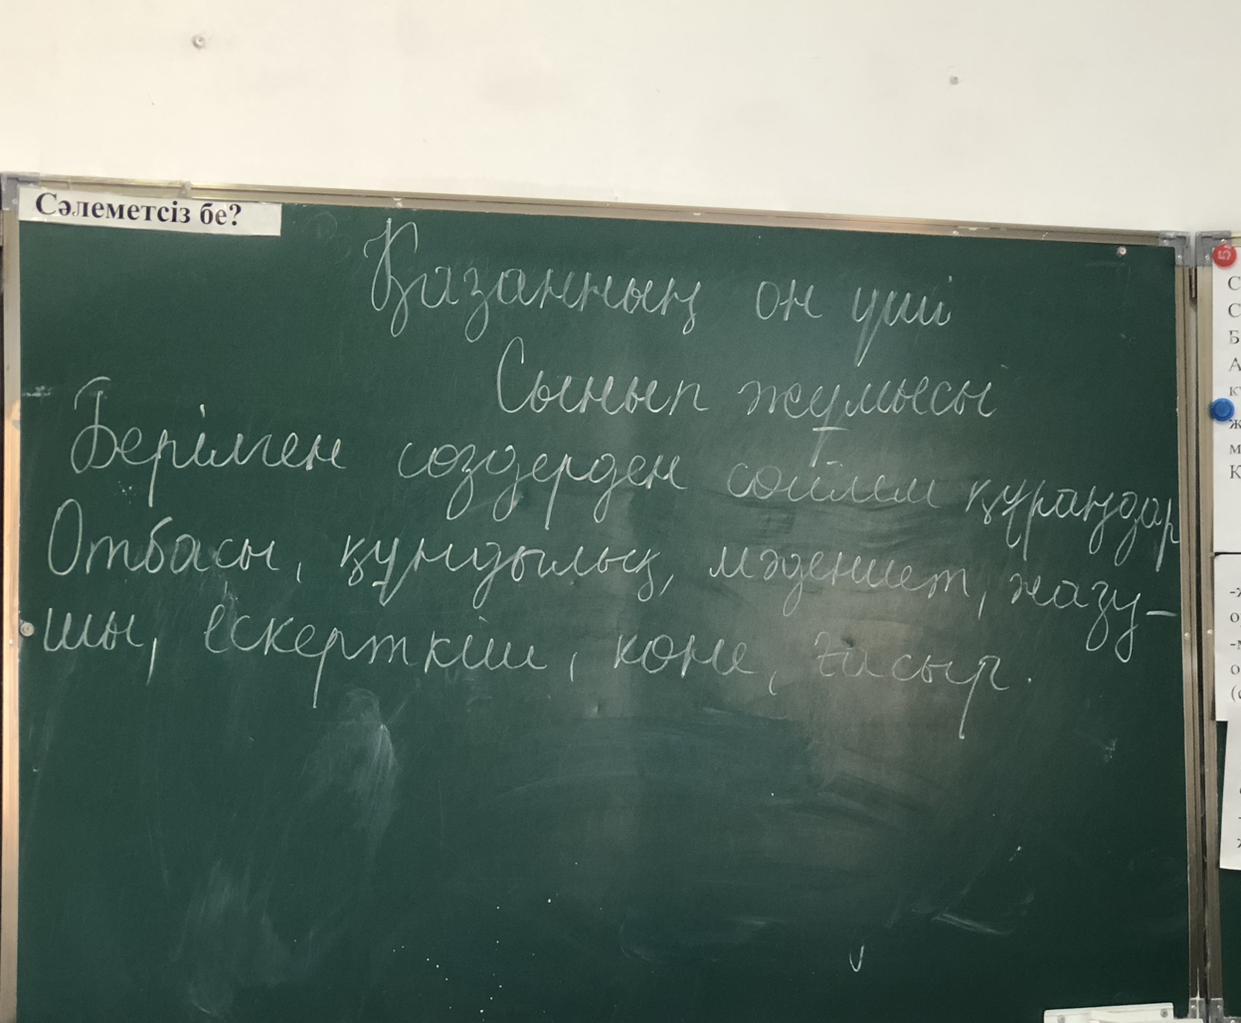 Сәлеметсіз бе?
Қазанның он үші
Сынып жұмысы
Берілген сөздерден сөйлем құраңдар
Отбасы, құндылық, мәдениет, жазу-
шы, ескерткіш, көне, ғасыр.